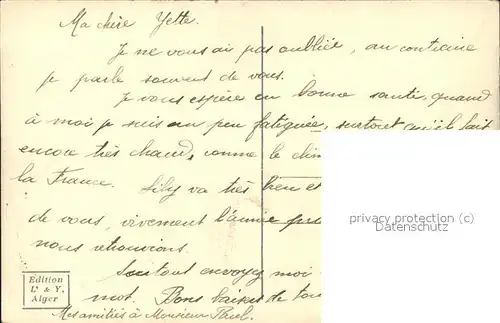 Ma chère Yette.
Je ne vous ai pas oubliée, au contraire
je parle souvent de vous.
Je vous espère en bonne santé, quand
à moi je suis un peu fatiguée, surtout qu'il fait
encore très chaud, comme le
la France. Lily va très bien et
de vous, vivement l'année
nous retrouvions.
Surtout envoyez moi
mot. Bons baisers de
Mes amitiés à Monsieur
Edition
L. & Y.
Alger
privacy protection (c)
Datenschutz